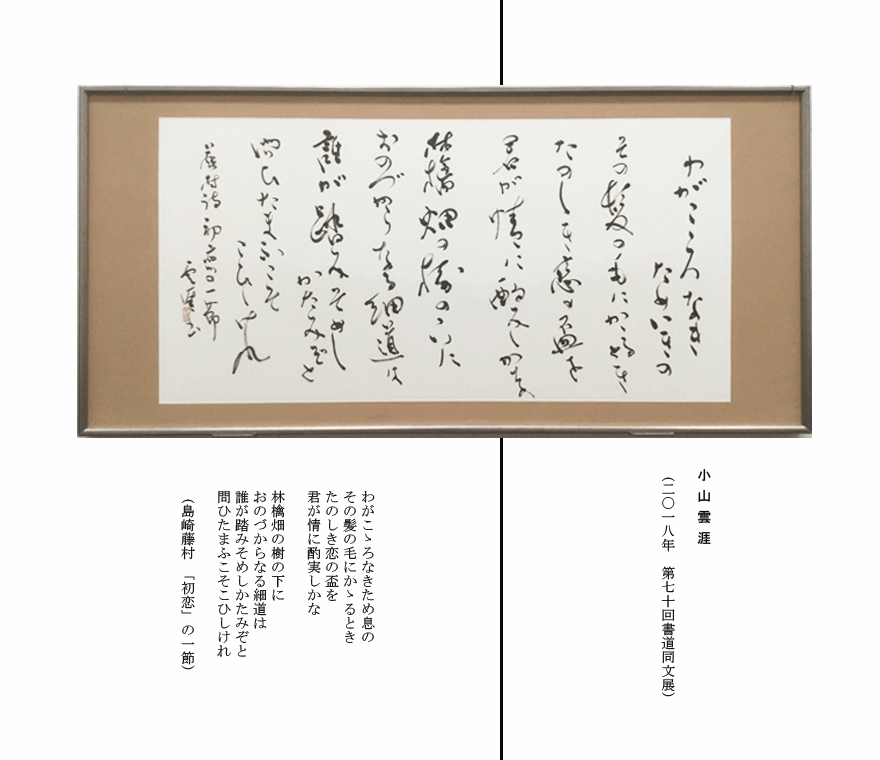 わがこゝろなき
ためいきの
その髪の毛にかゝるとき
たのしき恋の盃を
君が情に酌みしかな
林檎畑の樹のしたに
おのづからなる細道は
誰が踏みそめし
かたみぞと
問ひたまふこそ
こひしけれ
藤村詩 初恋の一節
雲涯書
小山雲涯
(二〇一八年 第七十回書道同文展)
わがこゝろなきため息の
その髪の毛にかゝるとき
たのしき恋の盃を
君が情に酌実しかな
林檎畑の樹の下に
おのづからなる細道は
誰が踏みそめしかたみぞと
問ひたまふこそこひしけれ
(島崎藤村 「初恋」の一節)